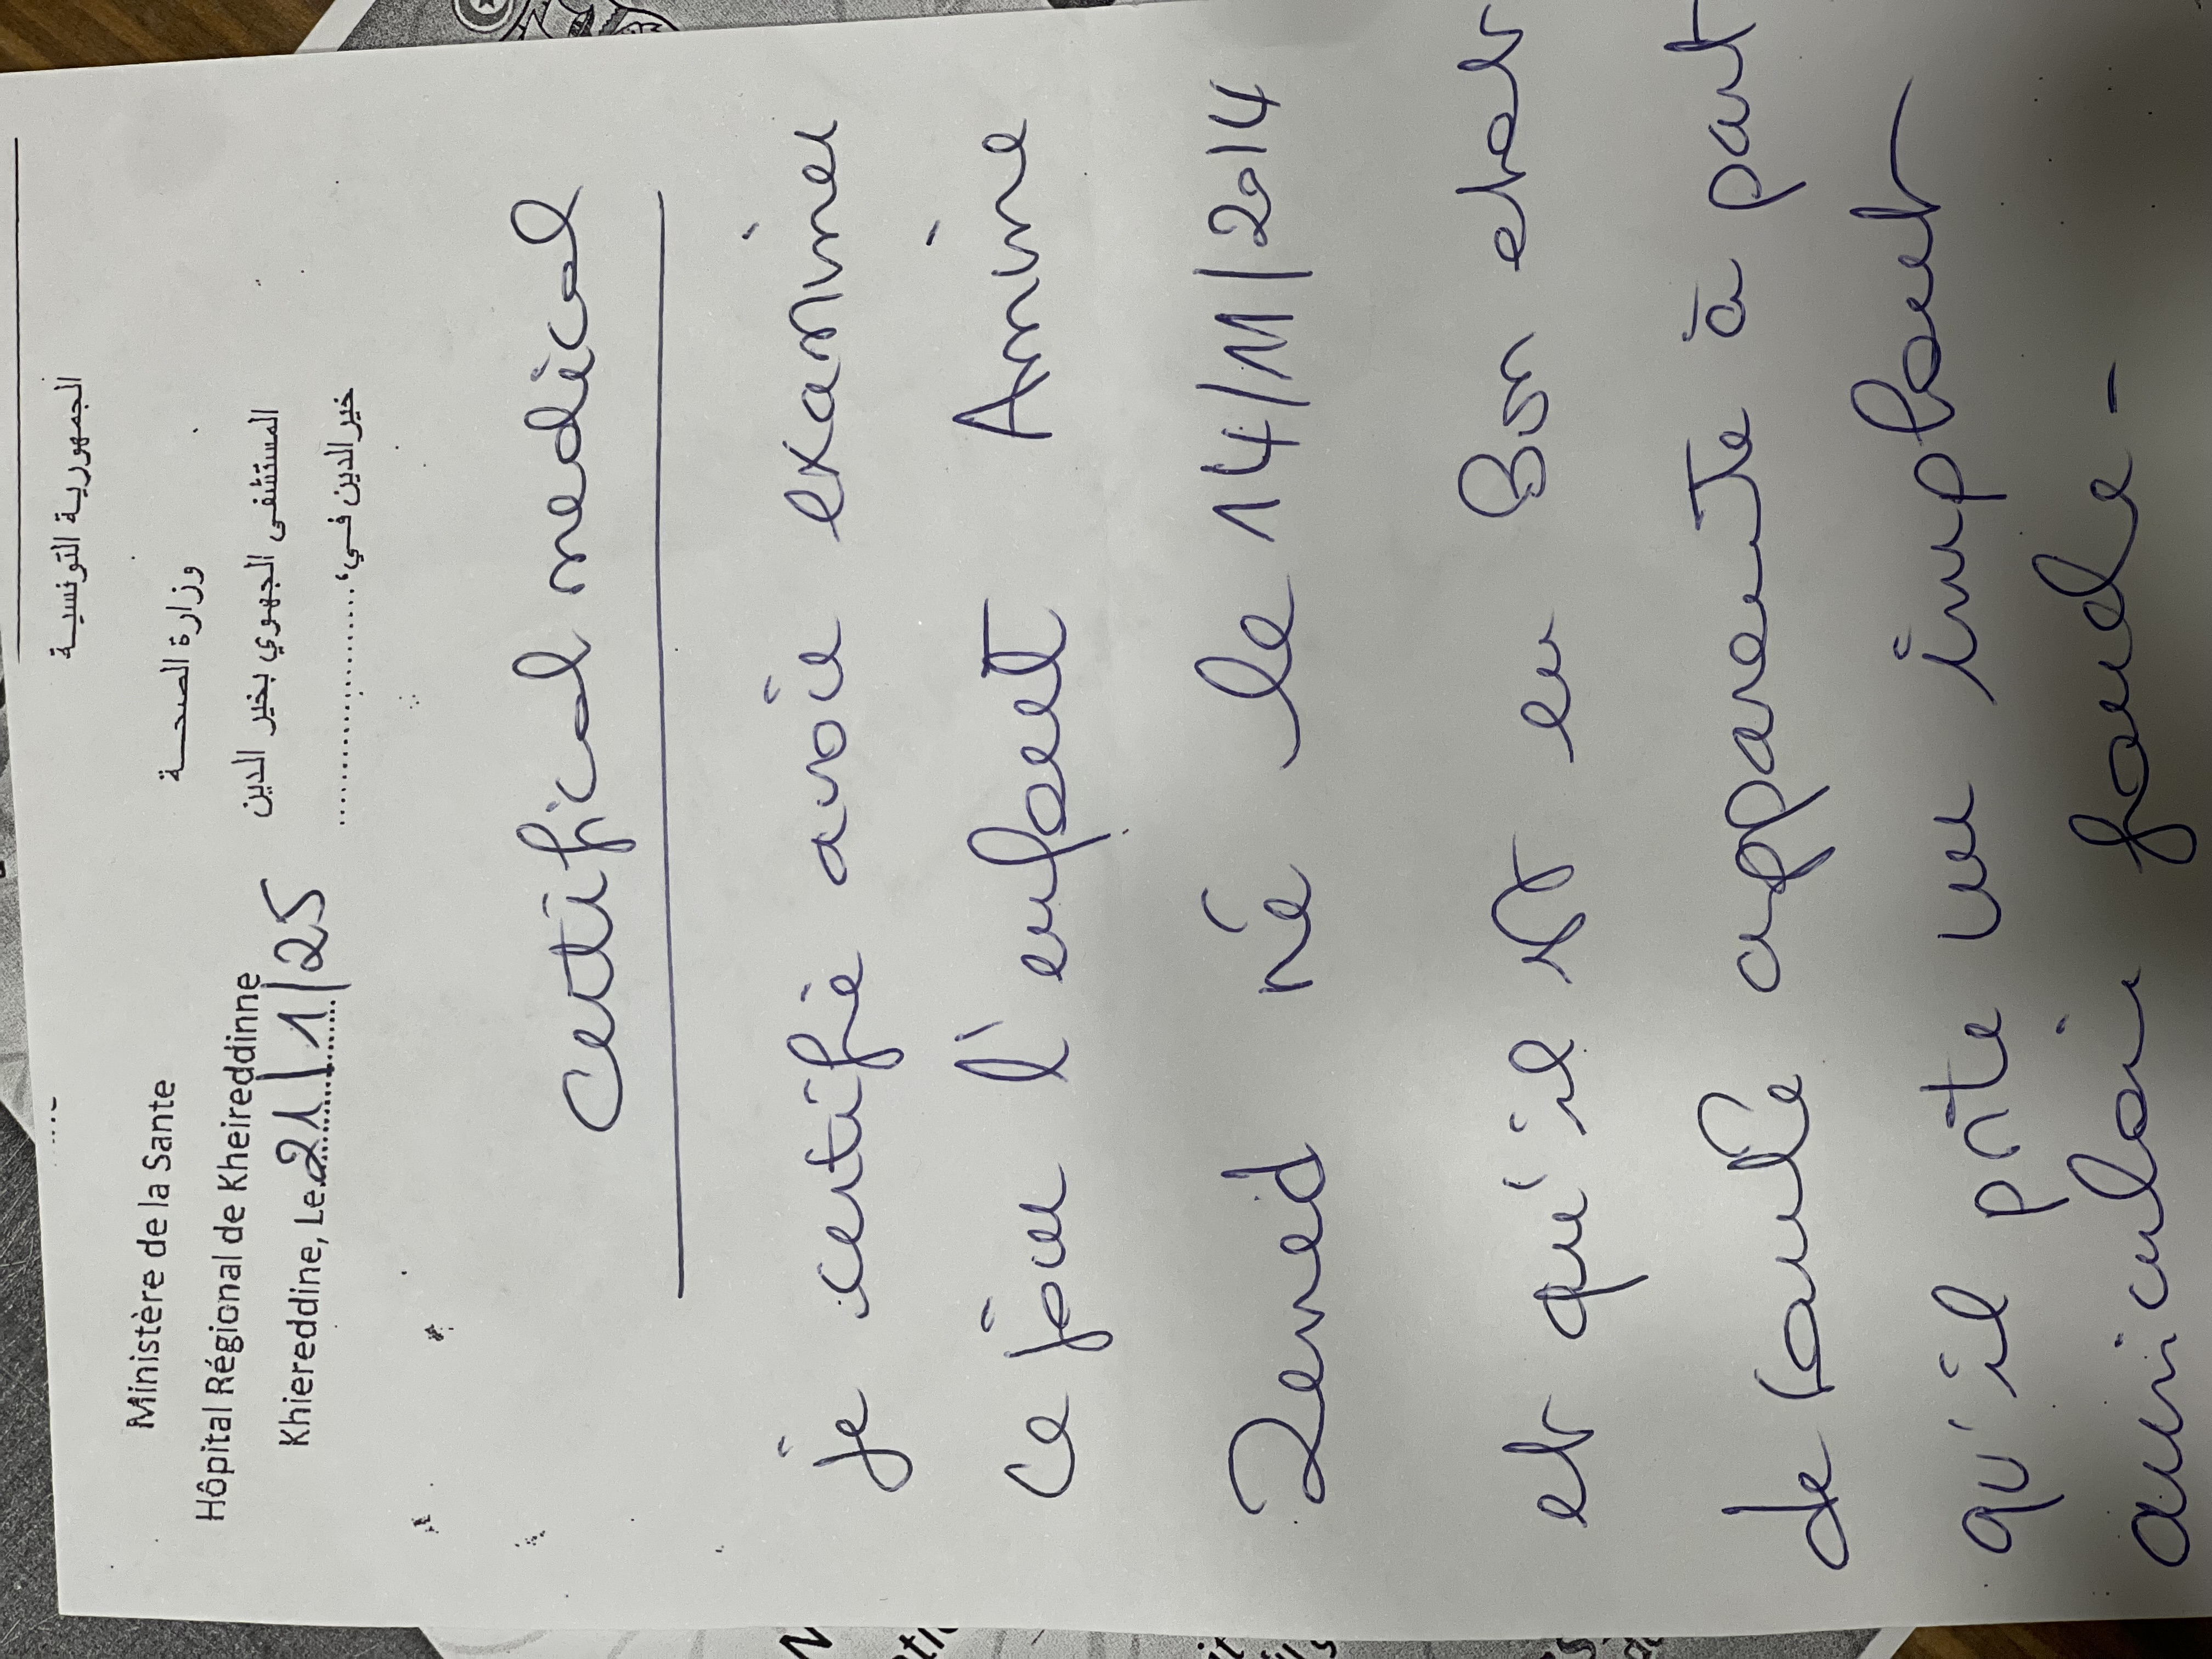 الجمهورية التونسية
وزارة الصحة
المستشفى الجهوي بخير الدين
خير الدين في،
Ministère de la Sante
Hôpital Régional de Kheireddinne
Khiereddine, Le 21/1/25
Certificat medical
je certifie avoir examiner
ce jour l'enfant Amine
né le 14/11/2014
et qu'il est en Bon etat
de santé apparente à part
qu'il porte un implant
auriculair